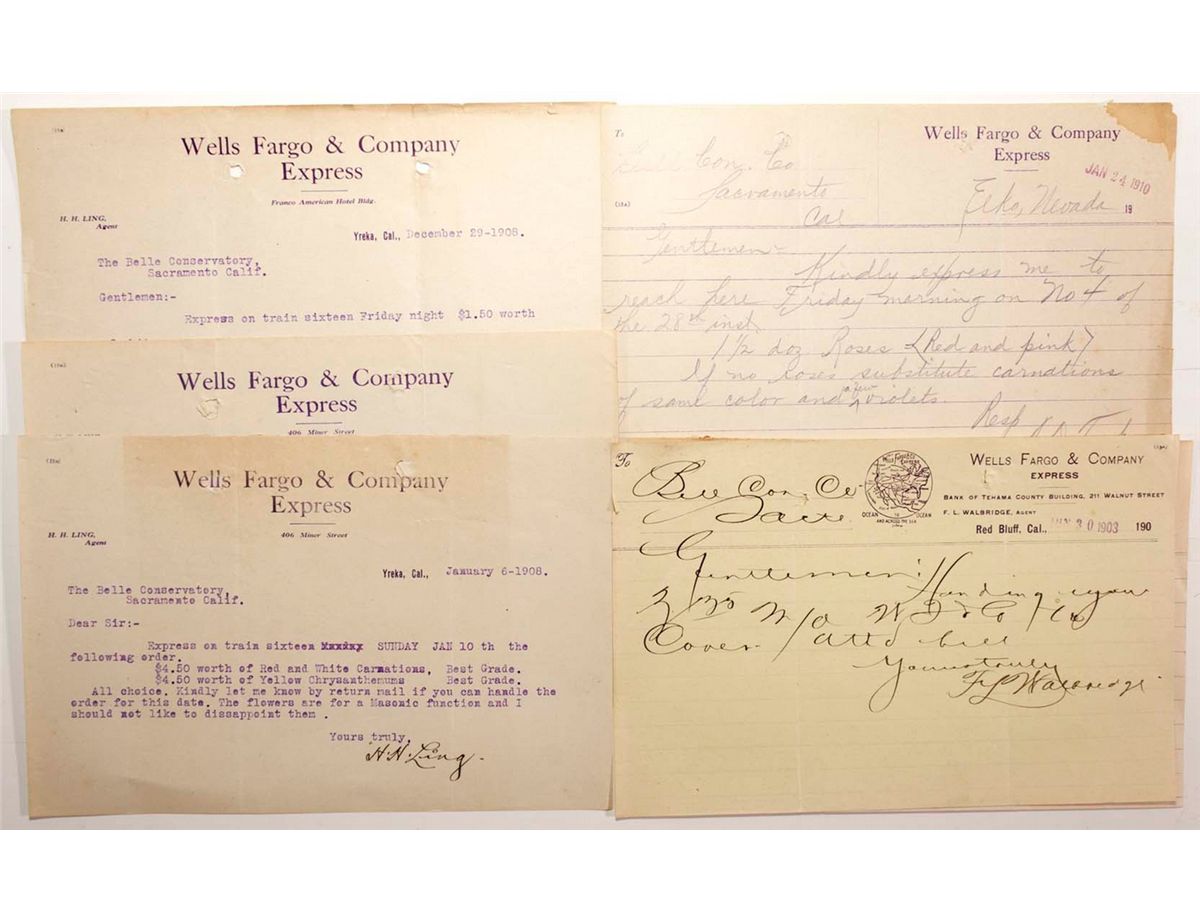 (15a)
Wells Fargo & Company
Express
Franco American Hotel Bldg.
H. H. LING,
Agent
Yreka, Cal., December 29-1908.
The Belle Conservatory,
Sacramento Calif.
Gentlemen:-
Express on train sixteen Friday night $1.50 worth
(15a)
Wells Fargo & Company
Express
406 Miner Street
H. H. LING,
(15a)
Wells Fargo & Company
Express
406 Miner Street
H. H. LING,
Agent
Yreka, Cal., January 6-1908.
The Belle Conservatory,
Sacramento Calif.
Dear Sir:-
Express on train sixteen SUNDAY JAN 10 th the
following order.
$4.50 worth of Red and White Carnations, Best Grade.
$4.50 worth of Yellow Chrysanthemums Best Grade.
All choice. Kindly let me know by return mail if you can handle the
order for this date. The flowers are for a Masonic function and I
should not like to dissappoint them .
Yours truly,
H. H. Ling.
To
Wells Fargo & Company
Express
JAN 24 1910
Con. Co
Sacramento
Cal
(15a)
Elko, Nevada 19
Gentlemen-
Kindly express me to
reach here Friday morning on No 4 of
the 28th inst
1 1/2 doz Roses (Red and pink)
If no roses substitute carnations
of same color and a few violets.
Resp
To
Bell Con. Co
Sacto
OCEAN TO OCEAN
AND ACROSS THE SEA
WELLS FARGO & COMPANY
EXPRESS
BANK OF TEHAMA COUNTY BUILDING, 211 WALNUT STREET
F. L. WALBRIDGE, AGENT
Red Bluff, Cal., 30 1903 190
Gentlemen:
Handing you
Cover attd bill
Yours truly
F L Walbridge